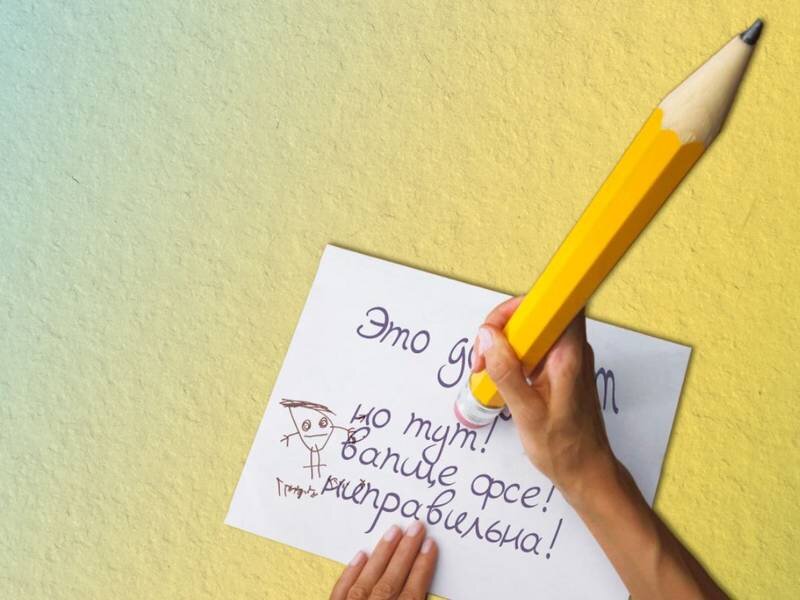 Это
но тут!
вапще фсе!
ниправильна!